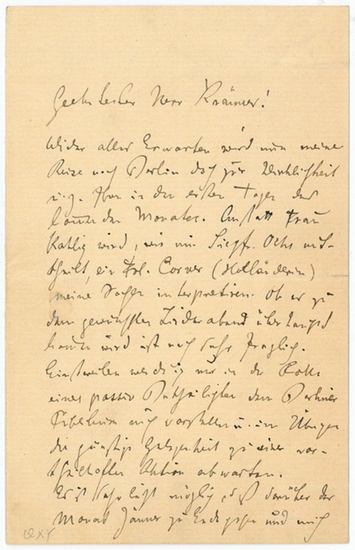 Geehrtester Herr Krämer!
Wider alles Erwarten wird nun meine
Reise nach Berlin doch zur Wirklichkeit
u. z. in den ersten Tagen des
kommenden Monates. Anstatt Frau
wird, wie mir Siegf. Ochs mit-
theilt, ein Frl. Corver (Holländerin)
meine Sachen interpretiren. Ob es zu
dem gewünschten Liederabend überhaupt
kommen wird ist noch sehr fraglich.
Einstweilen werde ich nur in der Rolle
eines passiv Betheiligten dem Berliner
Publikum mich vorstellen u. im Übrigen
die günstige Gelegenheit zu einer vor-
theilhaften Aktion abwarten.
Es ist sehr leicht möglich daß darüber der
Monat Jänner zu Ende geht und mich